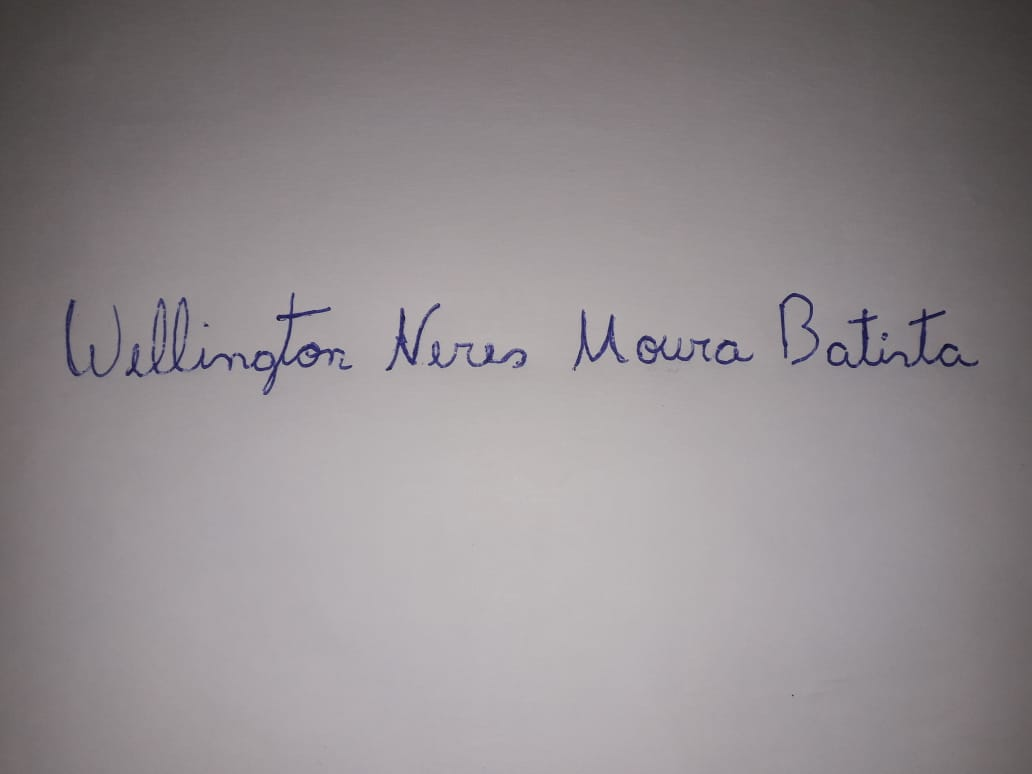 Wellington Neres Moura Batista